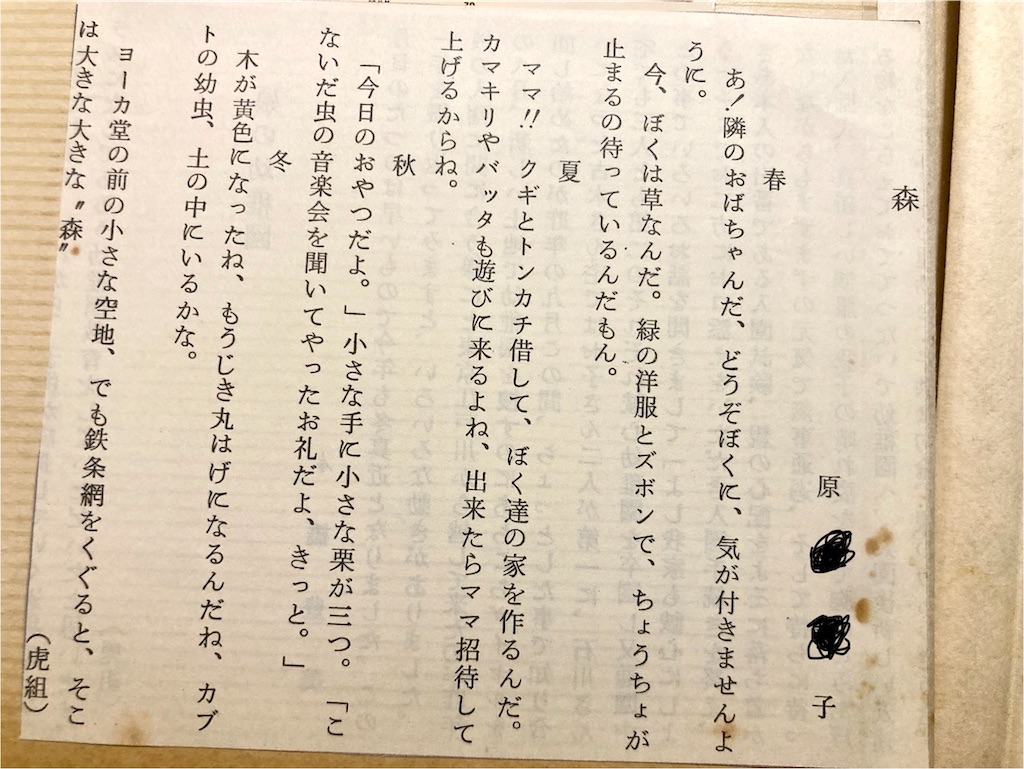 森
原 子
春
あ!隣のおばちゃんだ、どうぞぼくに、気が付きませんよ
うに。
今、ぼくは草なんだ。緑の洋服とズボンで、ちょうちょが
止まるの待っているんだもん。
夏
ママ!! クギとトンカチ借して、ぼく達の家を作るんだ。
カマキリやバッタも遊びに来るよね、出来たらママ招待して
上げるからね。
秋
「今日のおやつだよ。」小さな手に小さな栗が三つ。「こ
ないだ虫の音楽会を聞いてやったお礼だよ、きっと。」
冬
木が黄色になったね、もうじき丸はげになるんだね、カブ
トの幼虫、土の中にいるかな。
ヨーカ堂の前の小さな空地、でも鉄条網をくぐると、そこ
は大きな大きな〝森〟
(虎組)